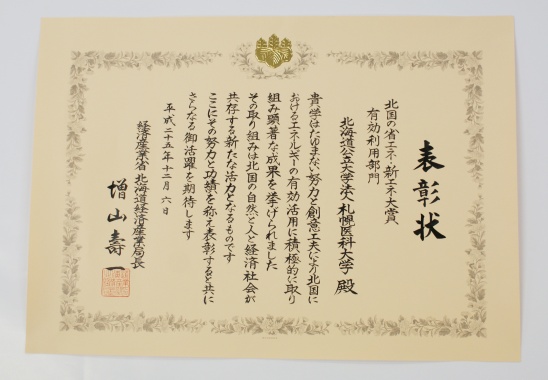 表彰状
北国の省エネ・新エネ大賞
有効利用部門
北海道公立大学法人札幌医科大学 殿
貴学はたゆまない努力と創意工夫により北国に
おけるエネルギーの有効活用に積極的に取り
組み顕著な成果を挙げられました
その取り組みは北国の自然と人と経済社会が
共存する新たな活力となるものです
ここにその努力と功績を称え表彰すると共に
さらなる御活躍を期待します
平成二十五年十二月六日
経済産業省北海道経済産業局長
増山壽一